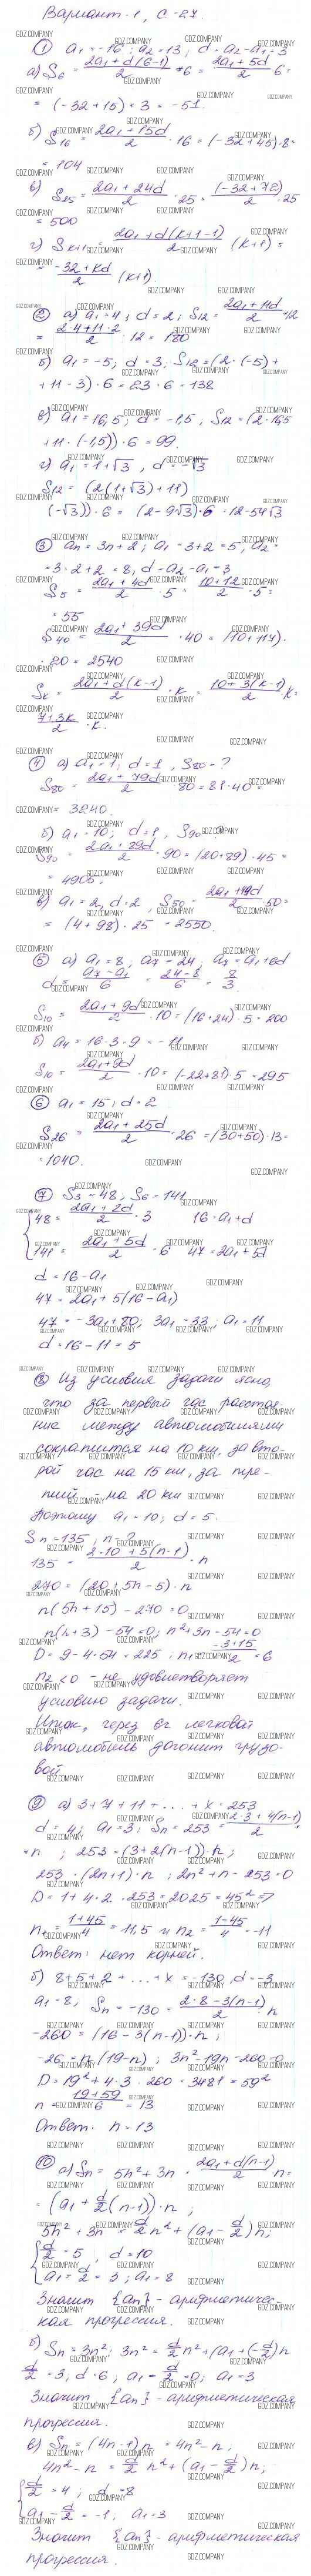 Вариант-1, С-27.
① a₁ = -16; a₂ = 13; d = a₂ - a₁ = 3
а) S₆ = (2a₁ + d(6-1))/2 · 6 = (2a₁ + 5d)/2 · 6 =
= (-32 + 15) · 3 = -51.
б) S₁₆ = (2a₁ + 15d)/2 · 16 = (-32 + 45) · 8 =
= 104
в) S₂₅ = (2a₁ + 24d)/2 · 25 = (-32 + 72)/2 · 25
= 500
г) Sₖ₊₁ = (2a₁ + d(k+1-1))/2 (k+1) =
= (-32 + kd)/2 (k+1)
② а) a₁ = 4; d = 2; S₁₂ = (2a₁ + 11d)/2 · 12
= (2·4 + 11·2)/2 · 12 = 180
б) a₁ = -5; d = 3; S₁₂ = (2·(-5) +
+ 11·3) · 6 = 23 · 6 = 138
в) a₁ = 16,5; d = -1,5; S₁₂ = (2·16,5
+ 11·(-1,5)) · 6 = 99.
г) a₁ = 1+√3, d = -√3
S₁₂ = (2(1+√3) + 11)
(-√3)) · 6 = (2 - 9√3) · 6 = 12 - 54√3
③ aₙ = 3n + 2; a₁ = 3 + 2 = 5; a₂ =
= 3·2 + 2 = 8, d = a₂ - a₁ = 3
S₅ = (2a₁ + 4d)/2 · 5 = (10 + 12)/2 · 5 =
= 55
S₄₀ = (2a₁ + 39d)/2 · 40 = (10 + 117) ·
· 20 = 2540
Sₖ = (2a₁ + d(k-1))/2 · k = (10 + 3(k-1))/2 k =
(7+3k)/2 · k.
④ а) a₁ = 1; d = 1, S₈₀ - ?
S₈₀ = (2a₁ + 79d)/2 · 80 = 81 · 40 =
= 3240
б) a₁ = 10; d = 1, S₉₀
S₉₀ = (2a₁ + 89d)/2 · 90 = (20 + 89) · 45 =
= 4905.
в) a₁ = 2, d = 2, S₅₀ = (2a₁ + 49d)/2 · 50 =
= (4 + 98) · 25 = 2550.
⑤ а) a₁ = 8; a₇ = 24; a₇ = a₁ + 6d
d = (a₇ - a₁)/6 = (24 - 8)/6 = 8/3.
S₁₀ = (2a₁ + 9d)/2 · 10 = (16 + 24) · 5 = 200
б) a₁ = 16 - 3·9 = -11
S₁₀ = (2a₁ + 9d)/2 · 10 = (-22 + 81) · 5 = 295
⑥ a₁ = 15; d = 2
S₂₆ = (2a₁ + 25d)/2 · 26 = (30 + 50) · 13 =
= 1040.
⑦ S₃ = 48, S₆ = 141
{ 48 = (2a₁ + 2d)/2 · 3 16 = a₁ + d
141 = (2a₁ + 5d)/2 · 6 47 = 2a₁ + 5d
d = 16 - a₁
47 = 2a₁ + 5(16 - a₁)
47 = -3a₁ + 80; 3a₁ = 33; a₁ = 11
d = 16 - 11 = 5
⑧ Из условия задачи ясно,
что за первый час расстоя-
ние между автомобилями
сократится на 10 км, за вто-
рой час на 15 км, за тре-
тий - на 20 км
Поэтому a₁ = 10; d = 5.
Sₙ = 135, n - ?
135 = (2·10 + 5(n-1))/2 · n
270 = (20 + 5n - 5) · n
n(5n + 15) - 270 = 0
n(n+3) - 54 = 0; n² + 3n - 54 = 0
D = 9 - 4·54 = 225; n₁ = (-3+15)/2 = 6
n₂ < 0 - не удовлетворяет
условию задачи.
Итак, через 6ч легковой
автомобиль догонит грузо-
вой
⑨ а) 3 + 7 + 11 + ... + x = 253
d = 4; a₁ = 3; Sₙ = 253 = (2·3 + 4(n-1))/2 ·
· n; 253 = (3 + 2(n-1)) · n;
253 = (2n+1) · n; 2n² + n - 253 = 0
D = 1 + 4·2·253 = 2025 = 45² =>
n₁ = (1+45)/4 = 11,5 и n₂ = (1-45)/4 = -11
Ответ: нет корней.
б) 8 + 5 + 2 + ... + x = -130, d = -3
a₁ = 8, Sₙ = -130 = (2·8 - 3(n-1))/2 · n
-260 = (16 - 3(n-1)) · n;
-26 = n(19 - n); 3n² - 19n - 260 = 0
D = 19² + 4·3·260 = 3481 = 59²
n = (19+59)/6 = 13
Ответ: n = 13
⑩ а) Sₙ = 5n² + 3n = (2a₁ + d(n-1))/2 n =
= (a₁ + d/2 (n-1)) · n;
5n² + 3n = d/2 n² + (a₁ - d/2) n;
{ d/2 = 5, d = 10
a₁ - d/2 = 3; a₁ = 8
Значит {aₙ} - арифметичес-
кая прогрессия.
б) Sₙ = 3n²; 3n² = d/2 n² + (a₁ + (-d/2)) n
d/2 = 3, d = 6, a₁ - d/2 = 0; a₁ = 3
Значит {aₙ} - арифметическая
прогрессия.
в) Sₙ = (4n - 1) n = 4n² - n,
4n² - n = d/2 n² + (a₁ - d/2) n;
{ d/2 = 4; d = 8
a₁ - d/2 = -1, a₁ = 3
Значит {aₙ} - арифметическая
прогрессия.